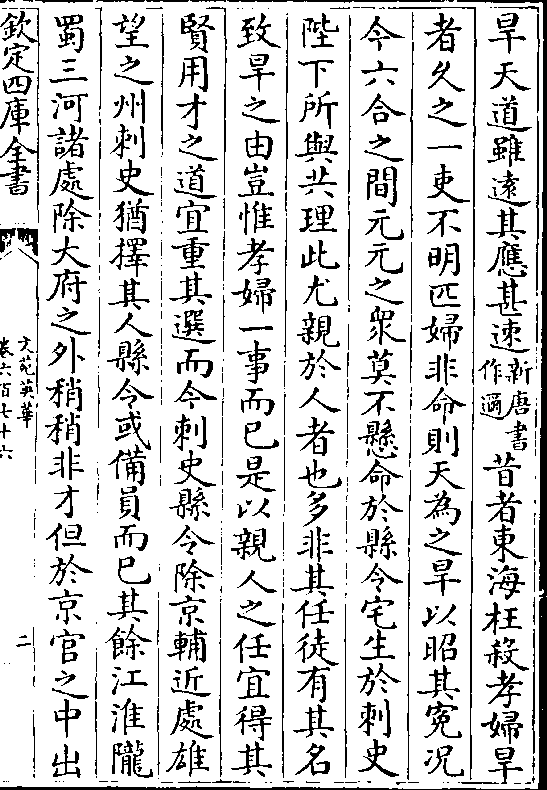 旱天道雖遠其應甚速新唐書作邇昔者東海枉殺孝婦旱
者久之一吏不明匹婦非命則天為之旱以昭其寃况
今六合之間元元之衆莫不懸命於縣令宅生於刺史
陛下所與共理此尤親於人者也多非其任徒有其名
致旱之由豈惟孝婦一事而已是以親人之任宜得其
賢用才之道宜重其選而今刺史縣令除京輔近處雄
望之州刺史猶擇其人縣令或備員而已其餘江淮隴
蜀三河諸處除大府之外稍稍非才但於京官之中出
欽定四庫全書
文苑英華
卷六百七十六
二